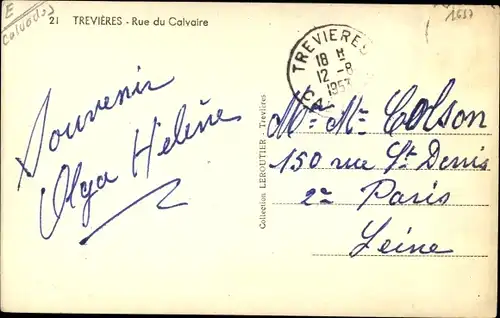 E
Calvados
21 TREVIÈRES - Rue du Calvaire
1637
TREVIERES
18 H
12 -8
1953
Souvenir
Olga Helène
Collection LEROUTIER - Trevières
Mr Me Colson
150 rue St Denis
2e Paris
Seine